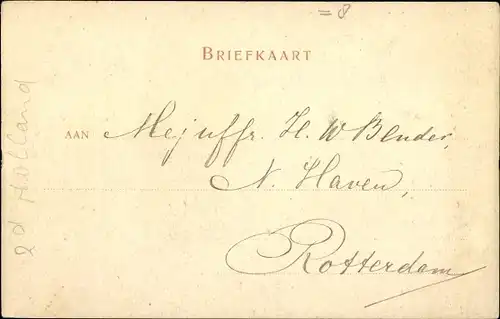 = 8
BRIEFKAART
AAN Mejuffr. H. W Blender,
N. Haven,
Rotterdam
2d Holland